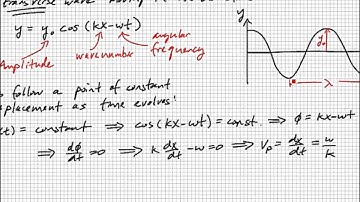 transverse wave moving
y = y₀ cos (kx-wt)
Amplitude
wavenumber
angular
frequency
y
y₀
λ
follow a point of constant
displacement as time evolves!
(t) = constant ⟹ cos(kx-wt) = const. ⟹ ϕ = kx-wt
⟹ dϕ/dt = 0 ⟹ k dx/dt - w = 0 ⟹ Vp = dx/dt = w/k